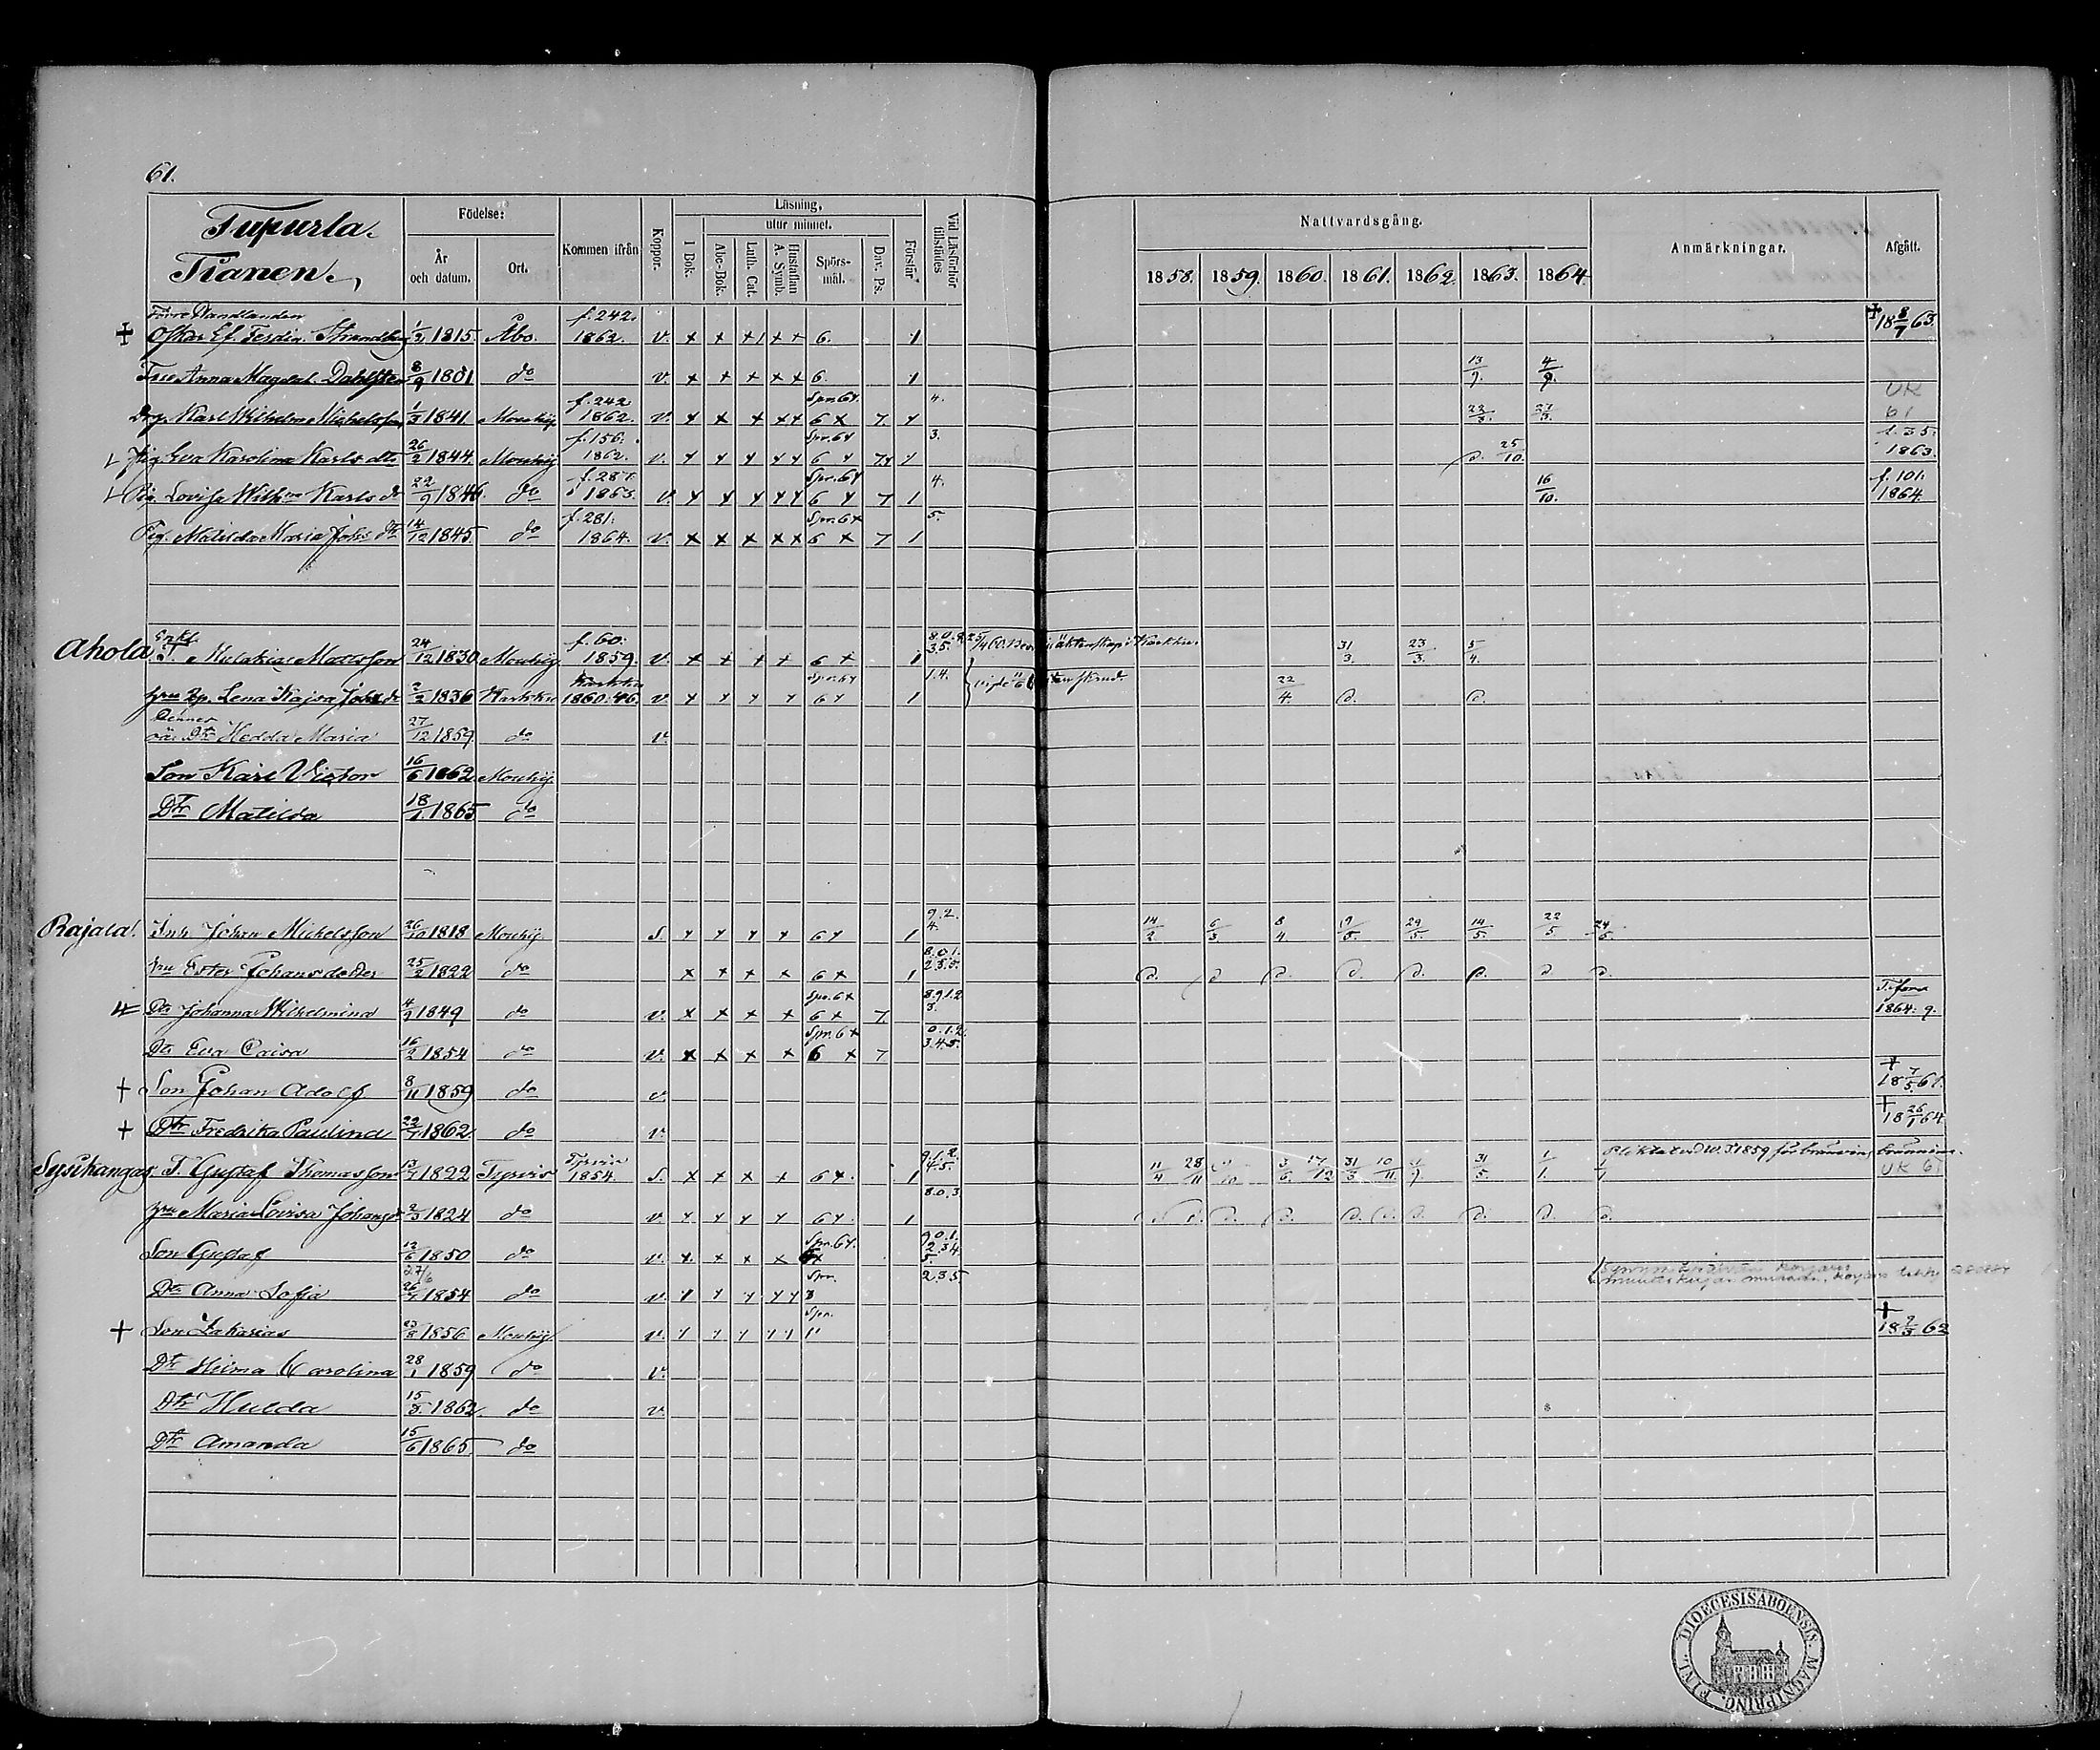 61.
Tupurla.
Tianen.
Födelse:
År och datum.
Ort.
Kommen ifrån
Koppor.
Läsning,
I Bok.
utur minnet.
Abc-Bok.
Luth. Cat.
Hustaflan A. Symb.
Spörsmål.
Dav. Ps.
Förstår
Vid Läsförhör tillstädes
Nattvardsgång.
1858. 1859. 1860. 1861. 1862. 1863. 1864.
Anmärkningar.
Afgått.
Förre Handlanden f. 242.
+ Oskar Ef. Ferdin. Strandberg 1815. Åbo. 1862. v. x x x 1 x x 6. 1 + 18 8/7 63.
Anna Magdal. Dahlsten 8/9 1801 do v. x x x x x 6. 1 13/9. 4/9.
f. 242 Spr. 64. 4. UK
Karl Wilhelm Michelsson 1/3 1841. Mouhij. 1862. v. x x x x x 6 x 7. 22/3. 27/3. 61
f. 156. Spr. 64 3. 1.35.
Pig. Eva Karolina Karls dtr 26/2 1844. Mouhij 1862. v. 6 d. 25/10. 1863.
f. 287. Spr. 64 4. f. 101.
Pig. Lovisa Wilhna Karls dr 22/9 1846. do 1863. v. 6 7 1 16/10. 1864.
f. 281. Spr. 6x 5.
Pig. Matilda Maria Johs dtr 14/12 1845 do 1864. v. x x x x x 6 x 7 1
Ahola
f. 60. 8.0.2 3.5.
T. Malakias Mattsson 24/12 1830 Mouhij. 1859. v. x x x x 6 x 1 äktenskap i Karkku. 31/3. 23/3. 5/4.
Karkku Spr. 64 1.4.
Lena Kajsa Johs dr 2/2 1836 Karkku 1860:46. v. 64 1 22/4. d. d.
Dennes
oä. Dtr Hedda Maria 27/12 1859 do v.
Son Karl Victor 16/6 1862 Mouhij.
Dtr Matilda 18/1. 1865 do
Rajala.
9.2. 4.
Inh. Johan Michelsson 26/10 1818 Mouhij. S. 64 1 14/2 6/3 8/4. 9/5. 29/5. 14/5. 22/5. 24/5.
8.0.1. 2.3.5.
hu Ester Johansdotter 25/2 1822 do x x x x 6 x 1 d. d. d. d. d. d. d. d.
Spr. 6x 8.9.1.2 3.
Dr Johanna Wilhelmina 4/9 1849 do v. x x x x 6 x 7. 1864: 9.
Spr. 6x 0.1.2. 3.4.5.
Dr Eva Caisa 16/2 1854 do v. x x x x 6 x 7
+ Son Johan Adolf 8/11 1859 do v. + 18 7/5 61.
+ Dtr Fredrika Paulina 22/7. 1862. do v. + 18 26/1 64
Sysikangas.
Tyrvis 9.1.2. 4.5. 1859 för bränvins bränning.
T. Gustaf Thomasson 13/7 1822 Tyrvis 1854. S. x x x x 64. 1 11/4 28/11 3/6. 17/12 31/3 10/11 31/5. 1/1. UK 61
8.0.3
hu Maria Lovisa Johansdr 2/3 1824 do v. 64. 1 d. d. d. d. d. d. d. d. d. d.
Spr. 64. 9.0.1. 2.3.4 5.
Son Gustaf 12/6 1850 do v. x x x x
27/6 Spr. 2.3.5
Dr Anna Sofia 26/7 1854 do v. 3
Spr.
+ Son Zakarias 23/8 1856 Mouhij v. + 18 2/3 62
Dtr Hilma Carolina 28/1 1859 do v.
Dtr Hulda 15/3. 1862. do v.
Dtr Amanda 15/6 1865 do
DIOECESIS ABOENSIS. MAGNI PRINC. FINL.